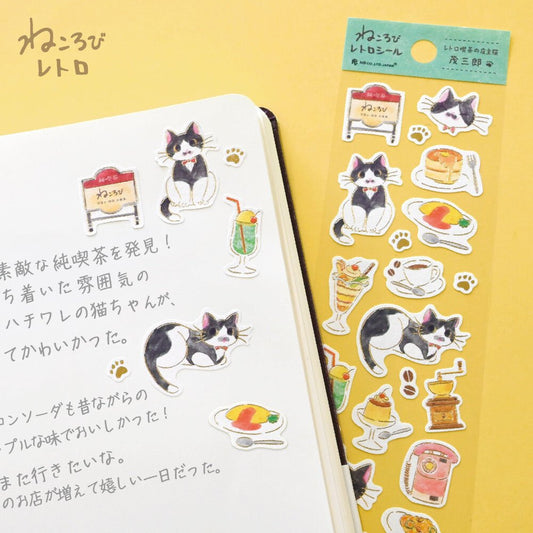 ねころび
レトロ
ねころび
レトロシール
レトロ喫茶の店主猫
茂三郎
純・喫茶
ねころび
ねころび
素敵な純喫茶を発見！
ち着いた雰囲気の
ハチワレの猫ちゃんが、
てかわいかった。
ロンソーダも昔ながらの
プルな味でおいしかった！
また行きたいな。
のお店が増えて嬉しい一日だった。